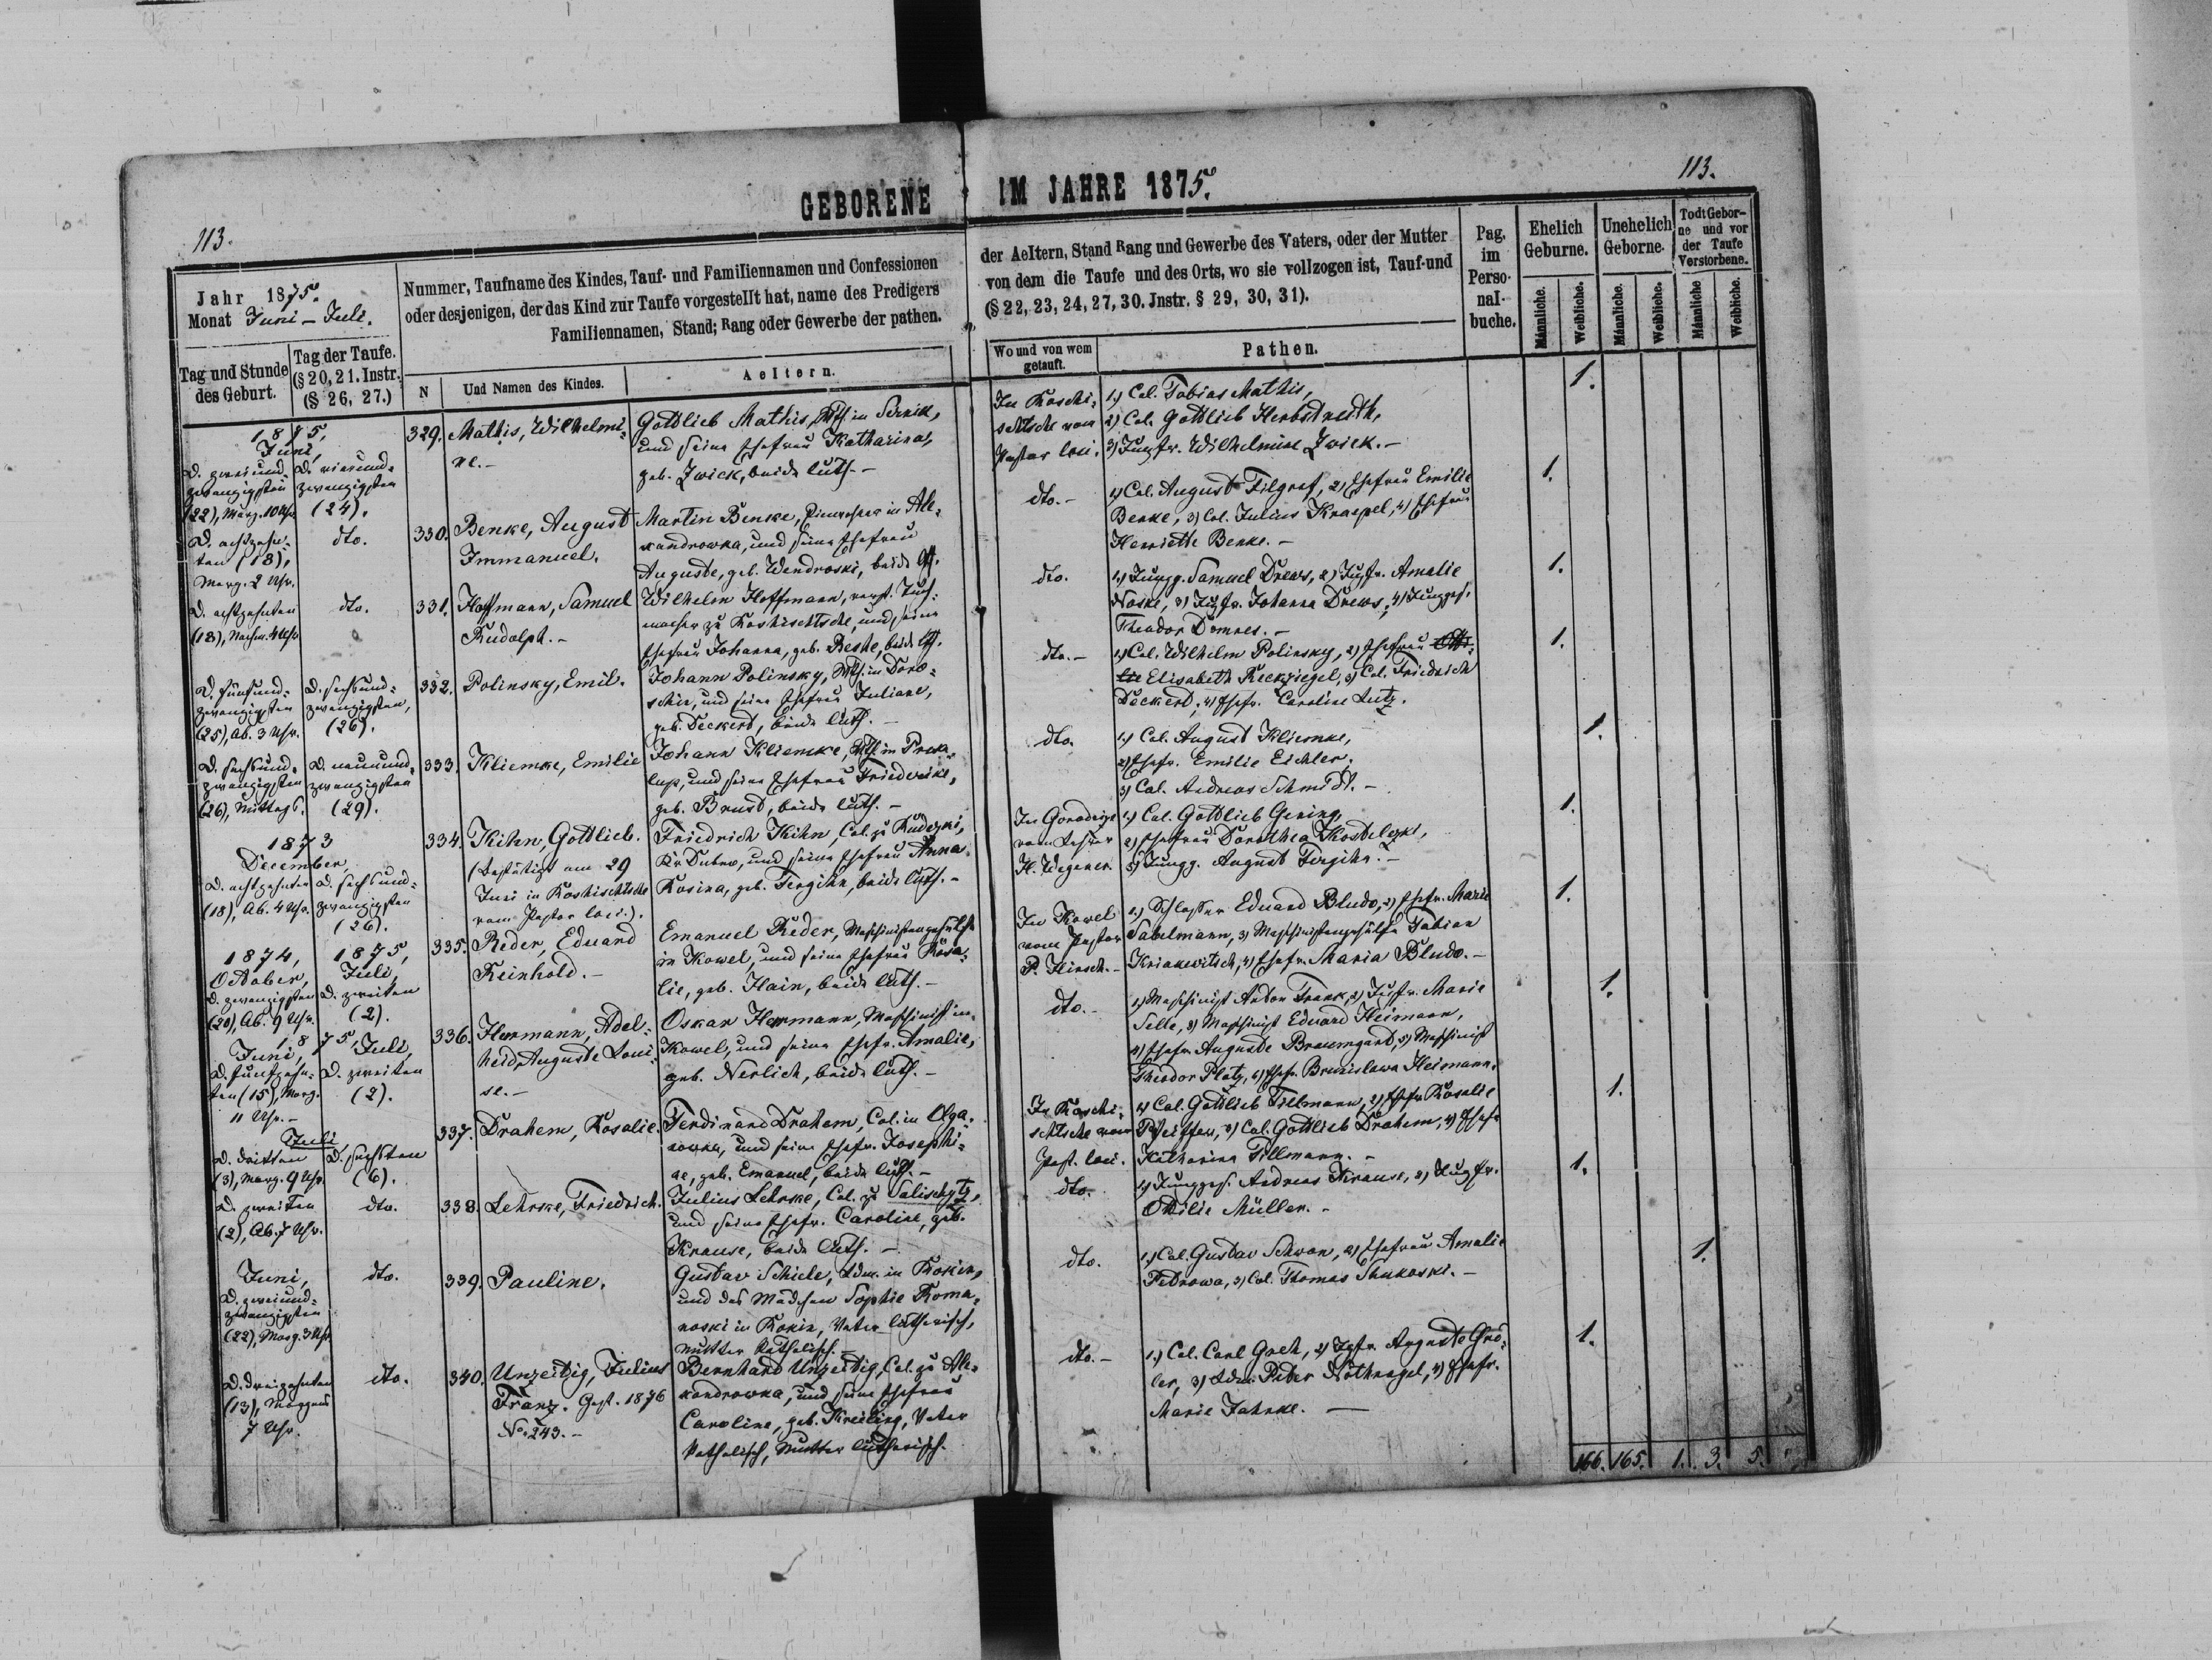 GEBORENE IM JAHRE 1875.
113.
113.
Jahr 1875.
Monat Juni - Juli.
Tag und Stunde des Geburt.
Tag der Taufe. (§ 20, 21. Instr. (§ 26, 27.)
Nummer, Taufname des Kindes, Tauf- und Familiennamen und Confessionen
oder desjenigen, der das Kind zur Taufe vorgestellt hat, name des Predigers
Familiennamen, Stand; Rang oder Gewerbe der pathen.
N
Und Namen des Kindes.
Aeltern.
der Aeltern, Stand Rang und Gewerbe des Vaters, oder der Mutter
von dem die Taufe und des Orts, wo sie vollzogen ist, Tauf-und
(§ 22, 23, 24, 27, 30. Jnstr. § 29, 30, 31).
Wo und von wem getauft.
Pathen.
Pag. im Perso- nal- buche.
Ehelich Geburne.
Unehelich Geborne.
Todt Gebor- ne und vor der Taufe Verstorbene.
Männliche.
Weibliche.
Männliche.
Weibliche.
Männliche
Weibliche.
1875,
Juni,
D. zweiund- D. vierund-
zwanzigsten zwanzigsten
(22), Morg. 10 Uhr (24).
329. Mathis, Wilhelmi-
ne.-
Gottlieb Mathis, in
und seine Ehefrau Katharina,
geb. Zwick, beide luth.-
In Koschi-
schtsche vom
Pastor loci.
1) Col. Tobias Mathis,
2) Col. Gottlieb Herbstreith,
3) Jungfr. Wilhelmine Zwick.-
1.
D. achtzehn-
ten (18),
Morg. 2 Uhr.
dto.
330. Benke, August
Immanuel.
Martin Benke, in Ale-
xandrowka, und seine Ehefrau
Auguste, geb. Wendroski, beide
dto.-
1) Col. August Filgraf, 2) Ehefrau Emilie
Benke, 3) Col. Julius Kraepel, 4) Ehefrau
Henriette Benke.-
1.
D. achtzehnten
(18), Nachm. 4 Uhr
dto.
331. Hoffmann, Samuel
Rudolph.-
Wilhelm Hoffmann,
macher zu Koshischtsche, und seine
Ehefrau Johanna, geb. Beske, beide
dto.
1) Jungg. Samuel Drews, 2) Jgfr. Amalie
Noske, 3) Jgfr. Johanna Drews, 4) Junggs.
Theodor.-
1.
D. fünfund-
zwanzigsten
(25), Ab. 3 Uhr.
D. sechsund-
zwanzigsten,
(26).
332. Polinsky, Emil.
Johann Polinsky, in Doro-
schin, und seine Ehefrau Juliane,
geb. Deckert, beide luth.-
dto.-
1) Col. Wilhelm Polinsky, 2) Ehefrau
Elisabeth Reckziegel, 3) Col. Friedrich
Deckert, 4) Ehefr. Caroline Lutz.
1.
D. sechsund-
zwanzigsten
(26), Mittags.
D. neunund-
zwanzigsten
(29).
333. Kliemke, Emilie
Johann Kliemke, in
und seine Ehefrau Friedericke,
geb. Brust, beide luth.-
dto.
1) Col. August Kliemke,
2) Ehefr. Emilie Eichler,
3) Col. Andreas Schmidt.-
1.
1873
December,
D. achtzehnten D. sechsund-
(18), Ab. 4 Uhr. zwanzigsten
(26).
334. Kihn, Gottlieb.
(Bestätigt am 29
Juni in Koshischtsche
vom Pastor loci).
Friedrich Kihn, Col. zu Rudezki,
Kr. Dubno, und seine Ehefrau Anna
Rosina, geb. beide luth.-
In Gorodize
vom Küster
H. Wegener
1) Col. Gottlieb Gering,
2) Ehefrau Dorothea
3) Jungg. August
1.
1874,
October,
D. zwanzigsten
(20), Ab. 9 Uhr.
1875,
Juli,
D. zweiten
(2).
335. Reder, Eduard
Reinhold.-
Emanuel Reder, Maschinistengehülfe
in Kowel, und seine Ehefrau Rosa-
lie, geb. Hain, beide luth.-
In Kowel
vom Pastor
P. Hirsch.-
1) Schlosser Eduard Bludo, 2) Ehefr. Marie
Sabelmann, 3) Maschinistengehülfe Fabian
Kriakewitsch, 4) Ehefr. Maria Bludo.-
1.
1875,
Juni, Juli,
D. fünfzehn- D. zweiten
ten (15), Morg. (2).
11 Uhr.-
336. Hermann, Adel-
heid, Auguste Loui-
se.-
Oskar Hermann, Maschinist in
Kowel, und seine Ehefr. Amalie,
geb. Nerlich, beide luth.-
dto.-
1) Maschinist Anton Frank, 2) Jgfr. Marie
Selle, 3) Maschinist Eduard Heimann,
4) Ehefr. Auguste Braumgart, 5) Maschinist
Theodor Platz, 6) Ehefr. Bronislawa Heimann.
1.
Juli
D. dritten D. sechsten
(3), Morg. 9 Uhr. (6).
337. Drahem, Rosalie.
Ferdinand Drahem, Col. in Olga-
nowka, und seine Ehefr. Josephi-
ne, geb. Emanuel, beide luth.-
In Koschi-
schtsche vom
Past. loci.
1) Col. Gottlieb Tillmann, 2) Ehefr. Rosalie
Pfeiffer, 3) Col. Gottlieb Drahem, 4) Ehefr.
Katharina Tillmann.-
1.
D. zweiten
(2), Ab. 7 Uhr.
dto.
338. Lehrke, Friedrich.
Julius Lehrke, Col. zu
und seine Ehefr. Caroline, geb.
Krause, beide luth.-
dto.
1) Jungges. Andreas Krause, 2) Jungfr.
Ottilie Müller.-
1.
Juni,
D. zweiund-
zwanzigsten
(22), Morg. 3 Uhr.
dto.
339. Pauline.
Gustav Schiele, in Rokin,
und das Mädchen Sophie Roma-
noski in Rokin, Vater lutherisch,
Mutter katholisch.-
dto.
1) Col. Gustav Schwan, 2) Ehefrau Amalie
Fedrowa, 3) Col. Thomas Shukoski.-
1.
D. dreizehnten
(13), Morgens
7 Uhr.
dto.
340. Unzeitig, Julius
Franz. Gest. 1876
No 243.-
Bernhard Unzeitig, Col. zu Ale-
xandrowka, und seine Ehefrau
Caroline, geb. Kreiling, Vater
katholisch, Mutter lutherisch.
dto.-
1) Col. Carl 2) Jgfr. Auguste
3) Peter Nothnagel, 4) Ehefr.
Marie Jahnke.-
1.
166. 165. 1. 3. 5.